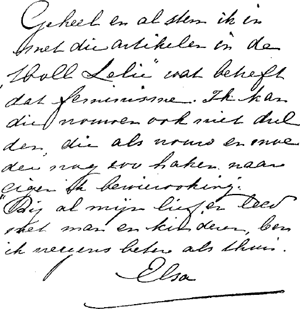 Geheel en al stem ik in
met die artikelen in de
"Holl Lelie" wat betreft
dat feminisme. Ik kan
die vrouwen ook niet dul
den, die als vrouw en moe
der nog zoo haken naar
eigen ik bewierooking.
"Bij al mijn lief en leed
met man en kinderen, ben
ik nergens beter als thuis.
Elsa